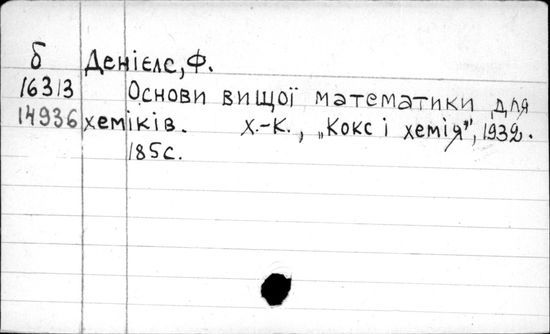 б Денієлс, Ф.
16313 Основи вищої математики для
14936 хеміків. Х.-К., „Кокс і хемія", 1932.
185с.